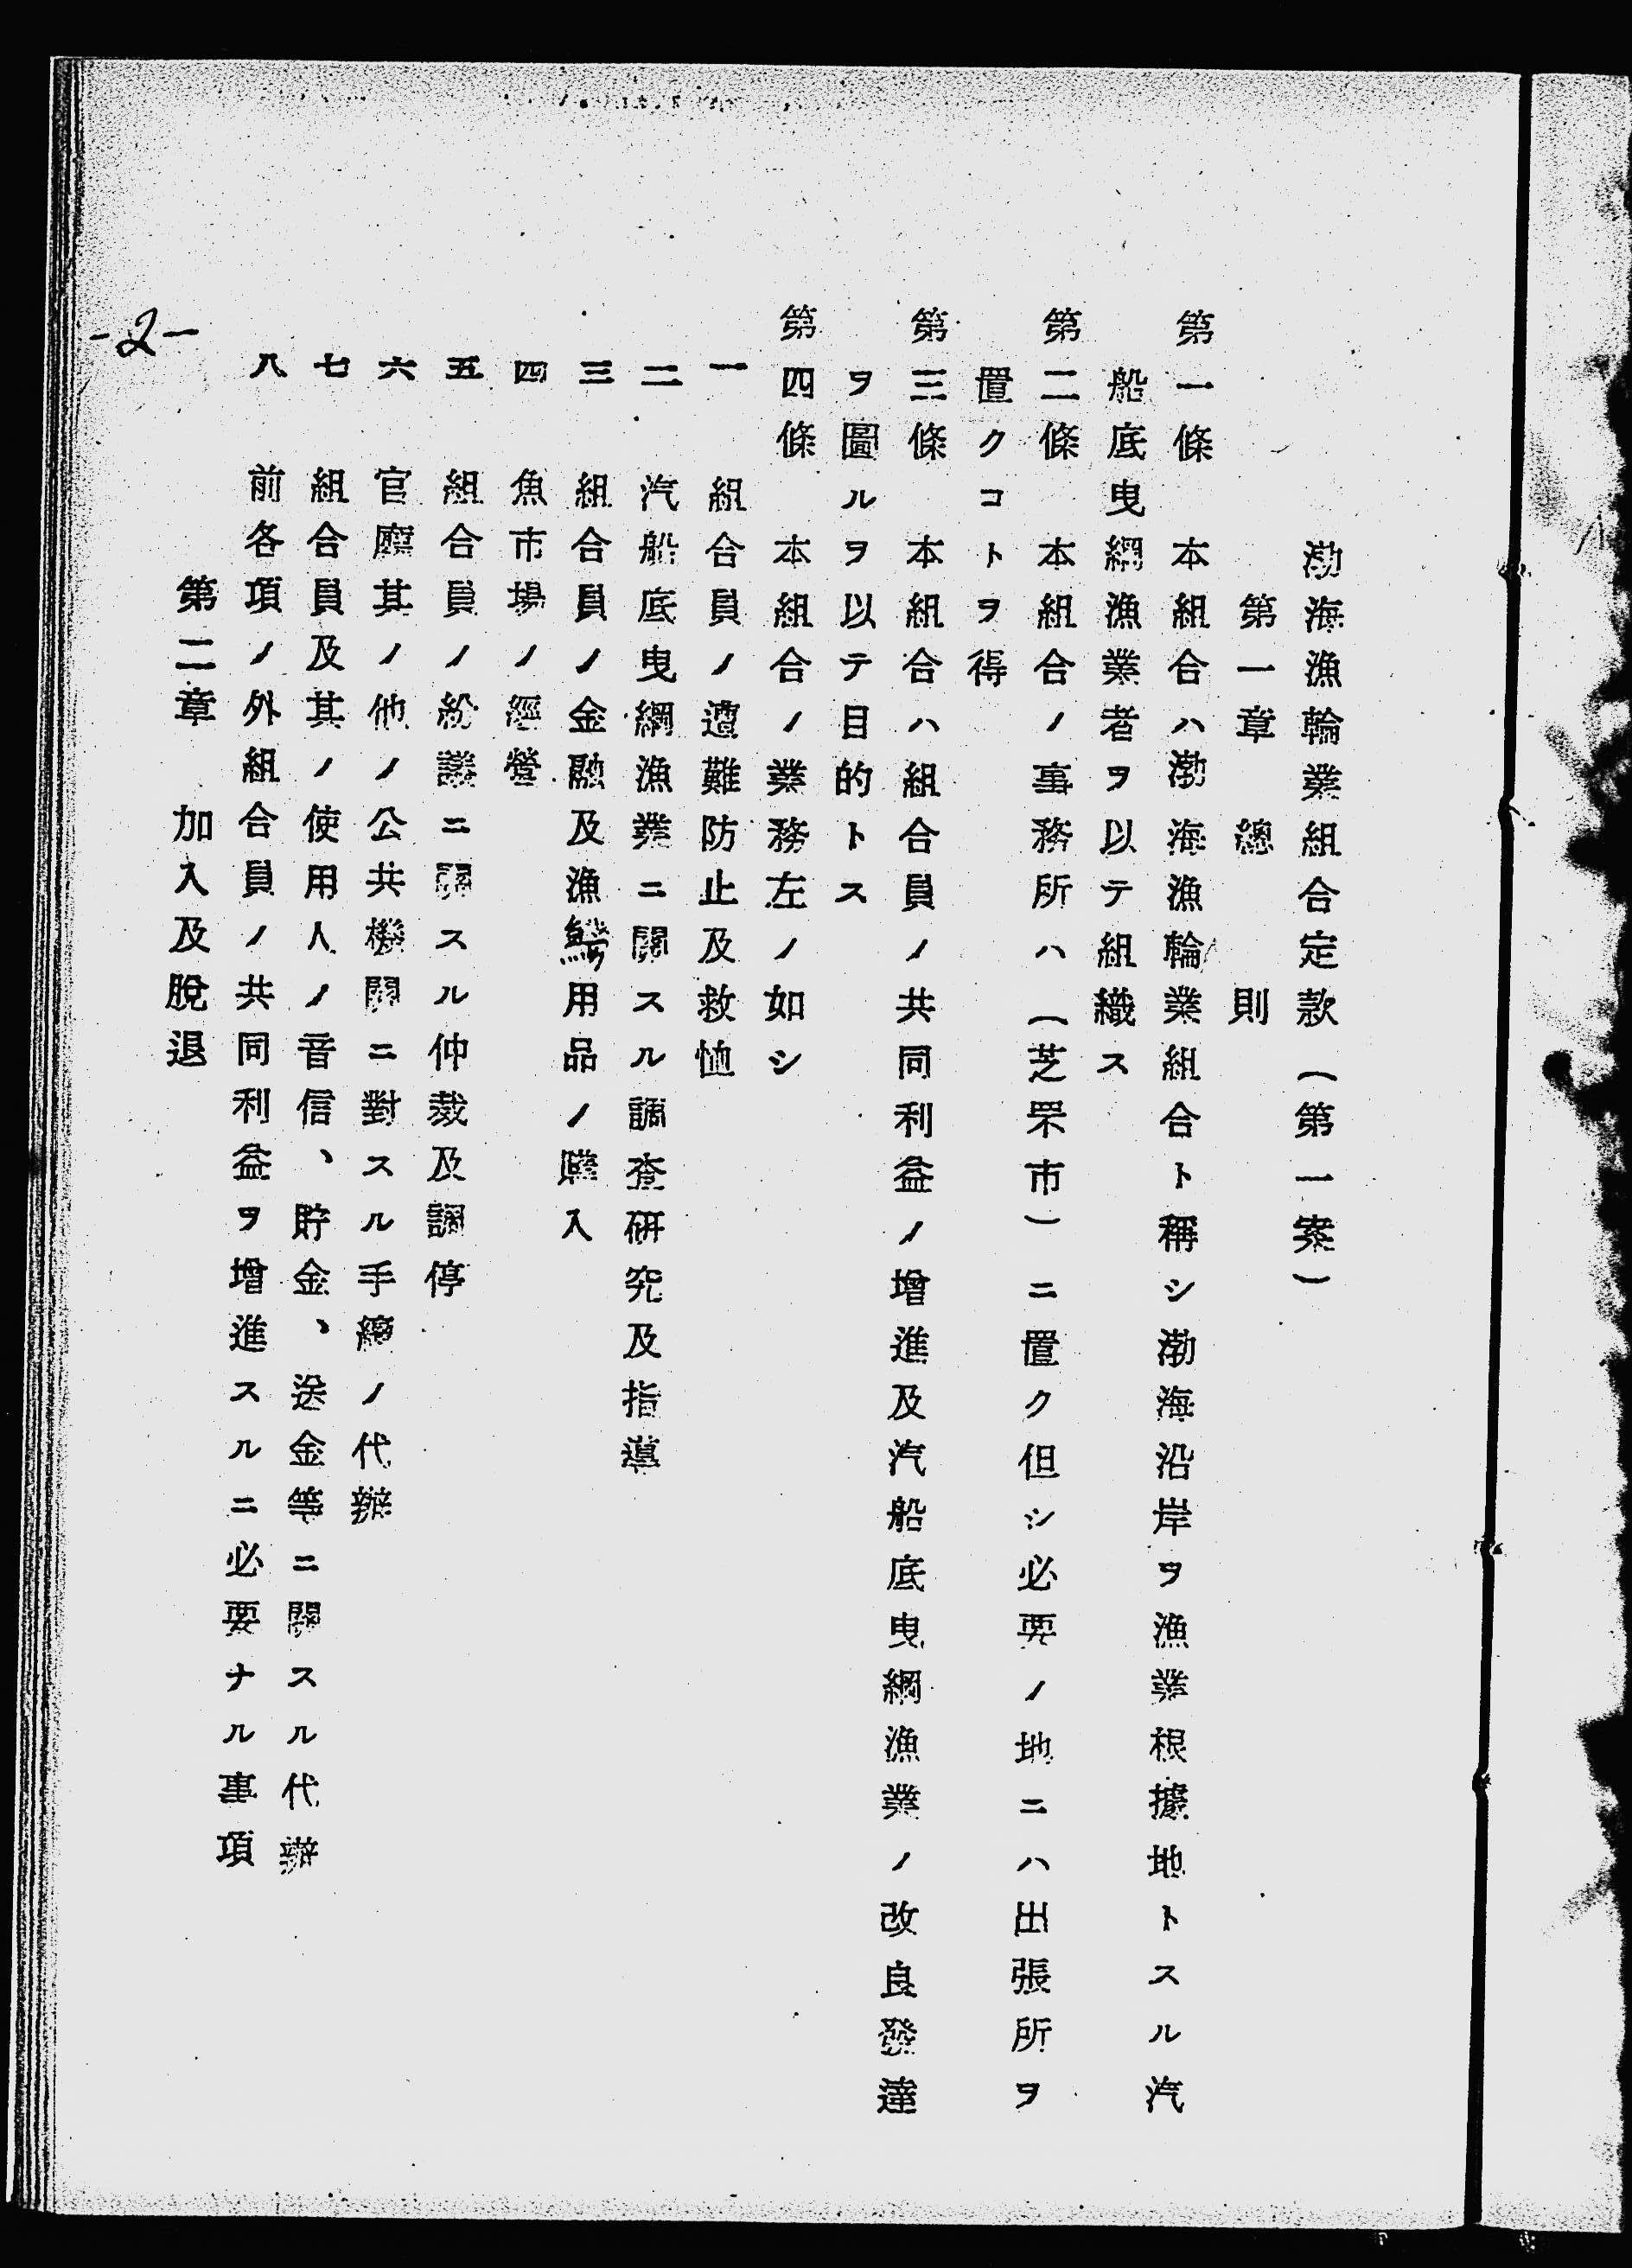 渤海漁輪業組合定款（第一案）
第一章　總　則
第一條　本組合ハ渤海漁輪業組合ト稱シ渤海沿岸ヲ漁業根據地トスル汽
船底曳網漁業者ヲ以テ組織ス
第二條　本組合ノ事務所ハ（芝罘市）ニ置ク但シ必要ノ地ニハ出張所ヲ
置クコトヲ得
第三條　本組合ハ組合員ノ共同利益ノ增進及汽船底曳網漁業ノ改良發達
ヲ圖ルヲ以テ目的トス
第四條　本組合ノ業務左ノ如シ
一　組合員ノ遭難防止及救恤
二　汽船底曳網漁業ニ關スル調査研究及指導
三　組合員ノ金融及漁撈用品ノ購入
四　魚市場ノ經營
五　組合員ノ紛議ニ關スル仲裁及調停
六　官廳其ノ他ノ公共機關ニ對スル手續ノ代辦
七　組合員及其ノ使用人ノ音信、貯金、送金等ニ關スル代辦
八　前各項ノ外組合員ノ共同利益ヲ增進スルニ必要ナル事項
第二章　加入及脫退
-2-